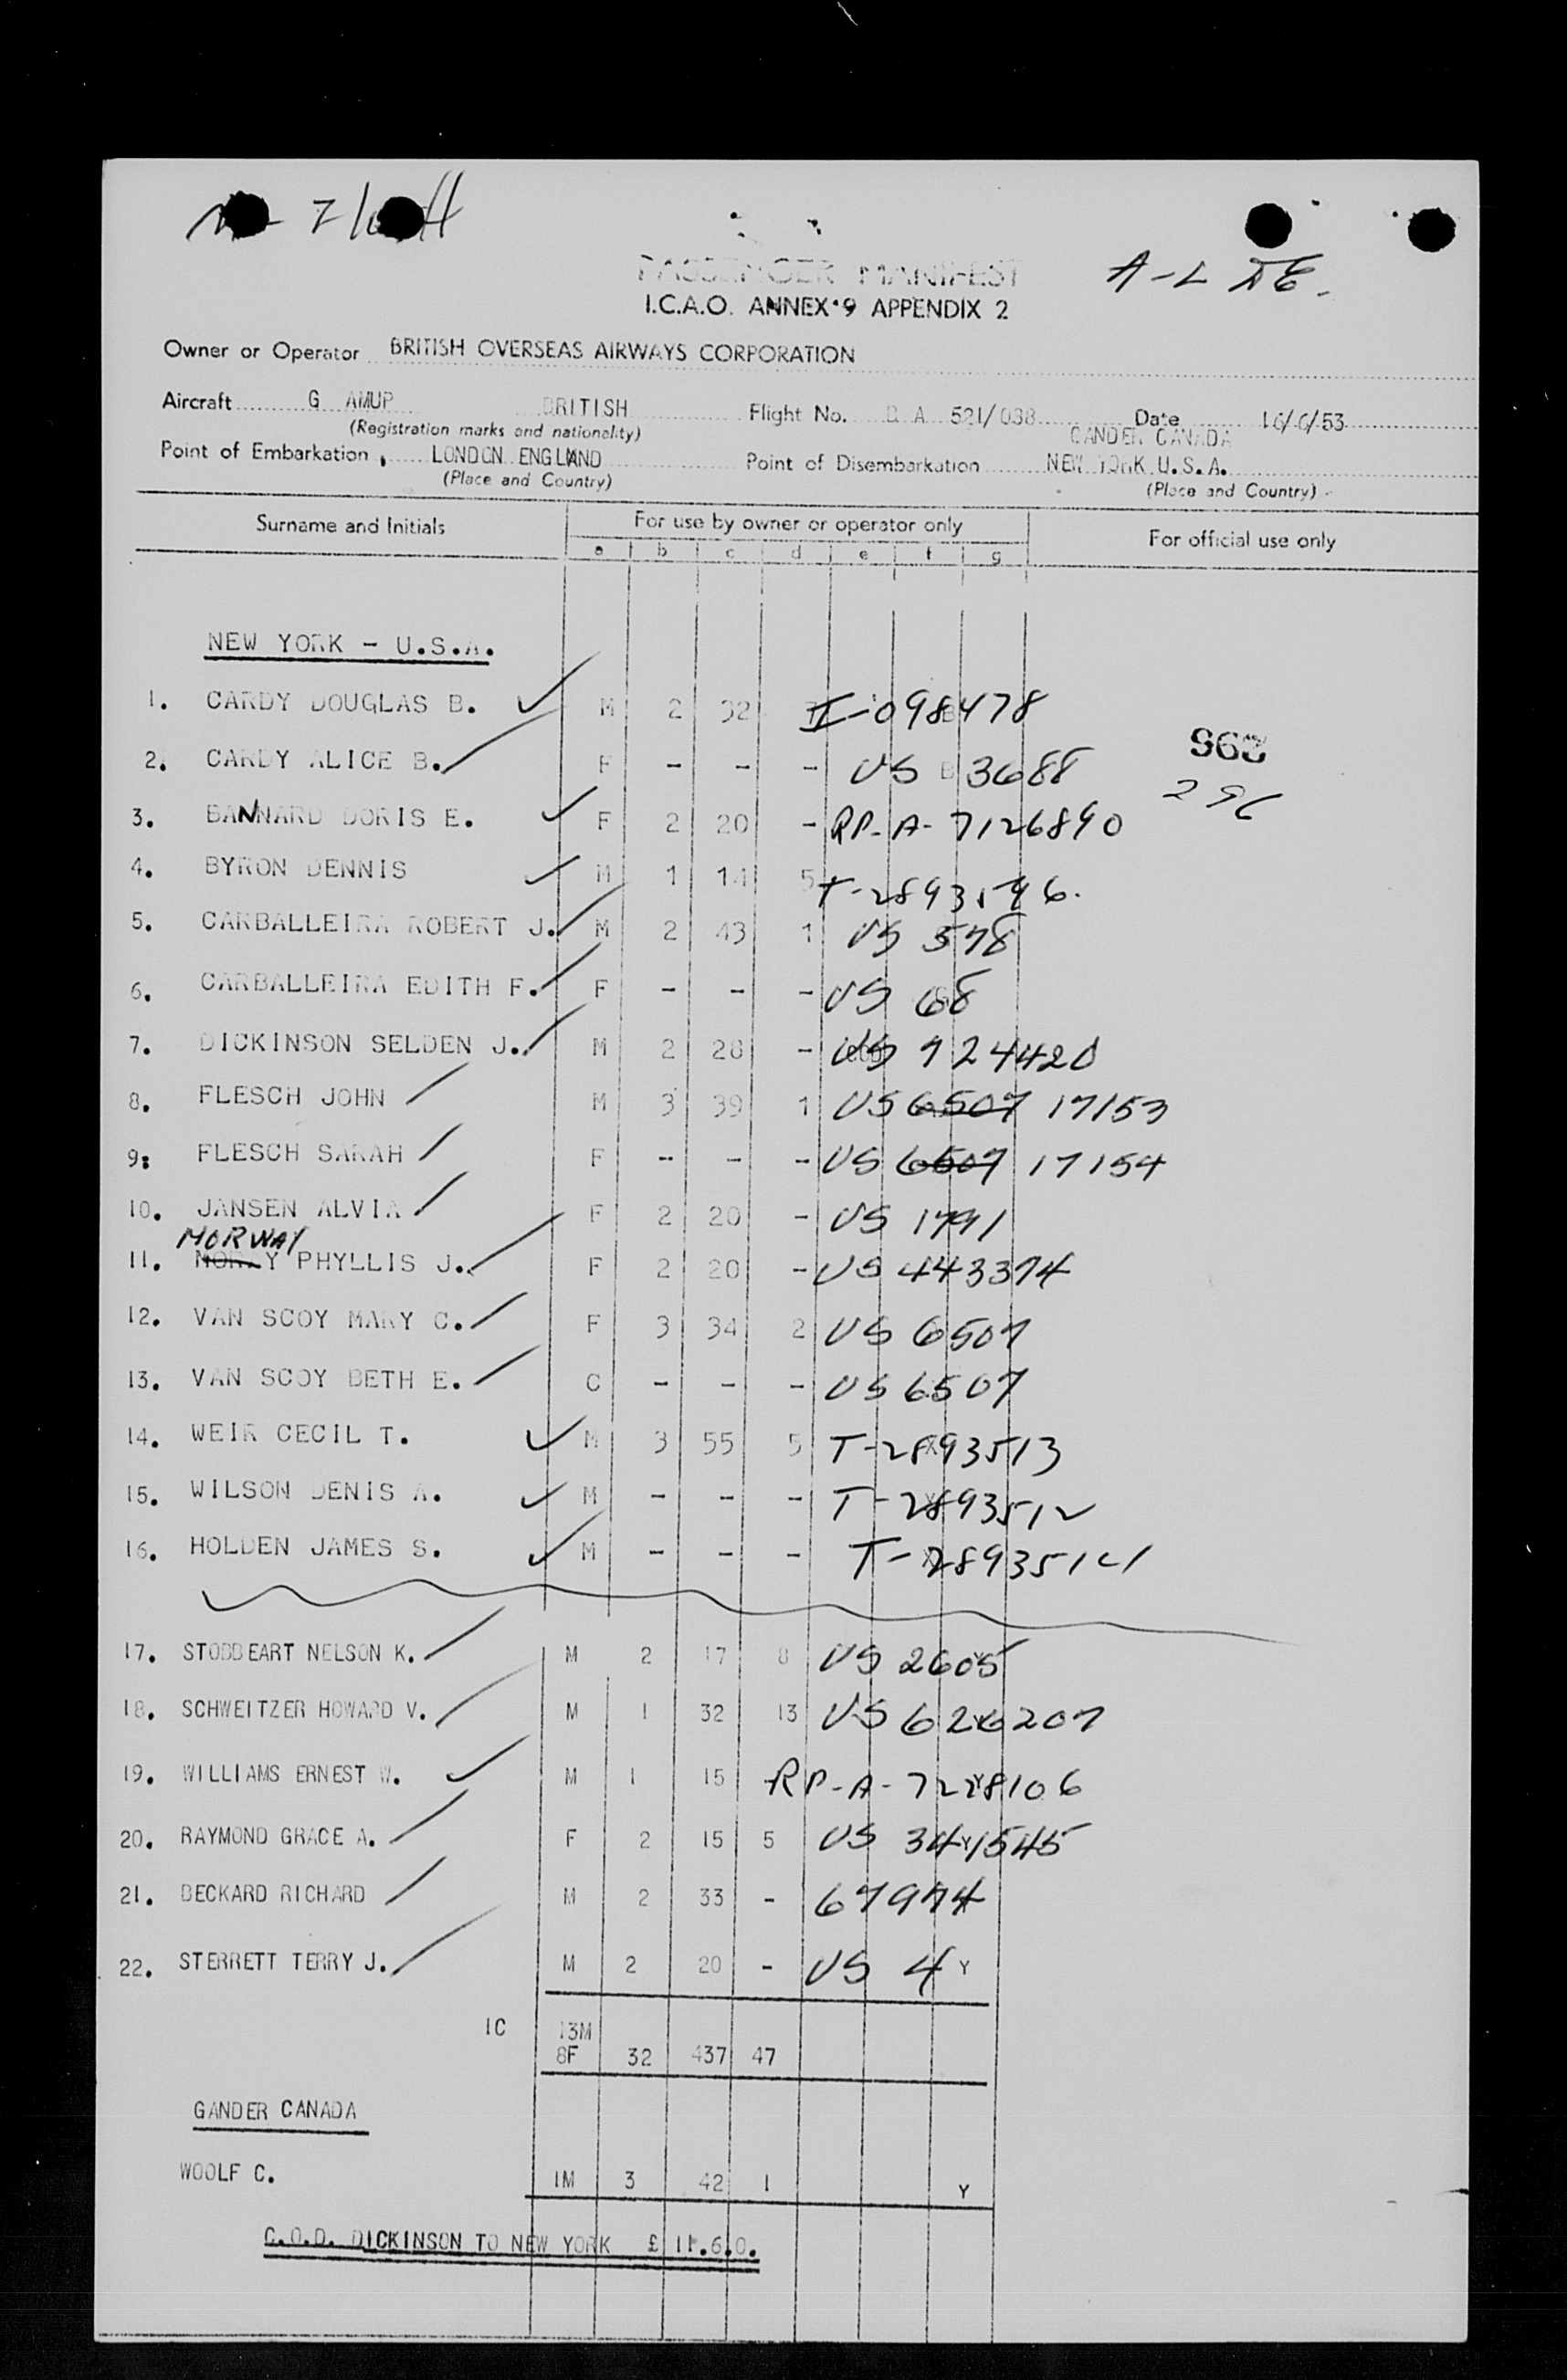 PASSENGER MANIFEST
A-L
I.C.A.O. ANNEX 9 APPENDIX 2
Owner or Operator BRITISH OVERSEAS AIRWAYS CORPORATION
Aircraft G AMUP BRITISH Flight No. B A 521/038 Date 16/6/53
(Registration marks and nationality) GANDER CANADA
Point of Embarkation LONDON ENGLAND Point of Disembarkation NEW YORK U.S.A.
(Place and Country) (Place and Country)
Surname and Initials For use by owner or operator only For official use only
a b c d e f g
NEW YORK - U.S.A.
1. CARDY DOUGLAS B. M 2 32 I-098478
2. CARDY ALICE B. F - - - US 3688
3. BANNARD DORIS E. F 2 20 - RP-A-7126890
4. BYRON DENNIS M 1 14 5 T-2893596.
5. CARBALLEIRA ROBERT J. M 2 43 1 US 578
6. CARBALLEIRA EDITH F. F - - - US 68
7. DICKINSON SELDEN J. M 2 28 - US 724420
8. FLESCH JOHN M 3 39 1 US 6507 17153
9: FLESCH SARAH F - - - US 6507 17154
10. JANSEN ALVIA F 2 20 - US 1791
MORWAY
11. Y PHYLLIS J. F 2 20 - US 443374
12. VAN SCOY MARY C. F 3 34 2 US 6507
13. VAN SCOY BETH E. C - - - US 6507
14. WEIR CECIL T. M 3 55 5 T-2893513
15. WILSON DENIS A. M - - - T-2893512
16. HOLDEN JAMES S. M - - -
17. STOBBEART NELSON K. M 2 17 8 US 2605
18. SCHWEITZER HOWARD V. M 1 32 13 US 626207
19. WILLIAMS ERNEST W. M 1 15 RP-A-7228106
20. RAYMOND GRACE A. F 2 15 5 US 341545
21. BECKARD RICHARD M 2 33 - 67974
22. STERRETT TERRY J. M 2 20 - US 4 Y
1C 13M
8F 32 437 47
GANDER CANADA
WOOLF C. 1M 3 42 1 Y
C.O.D. DICKINSON TO NEW YORK £ 11.6.0.